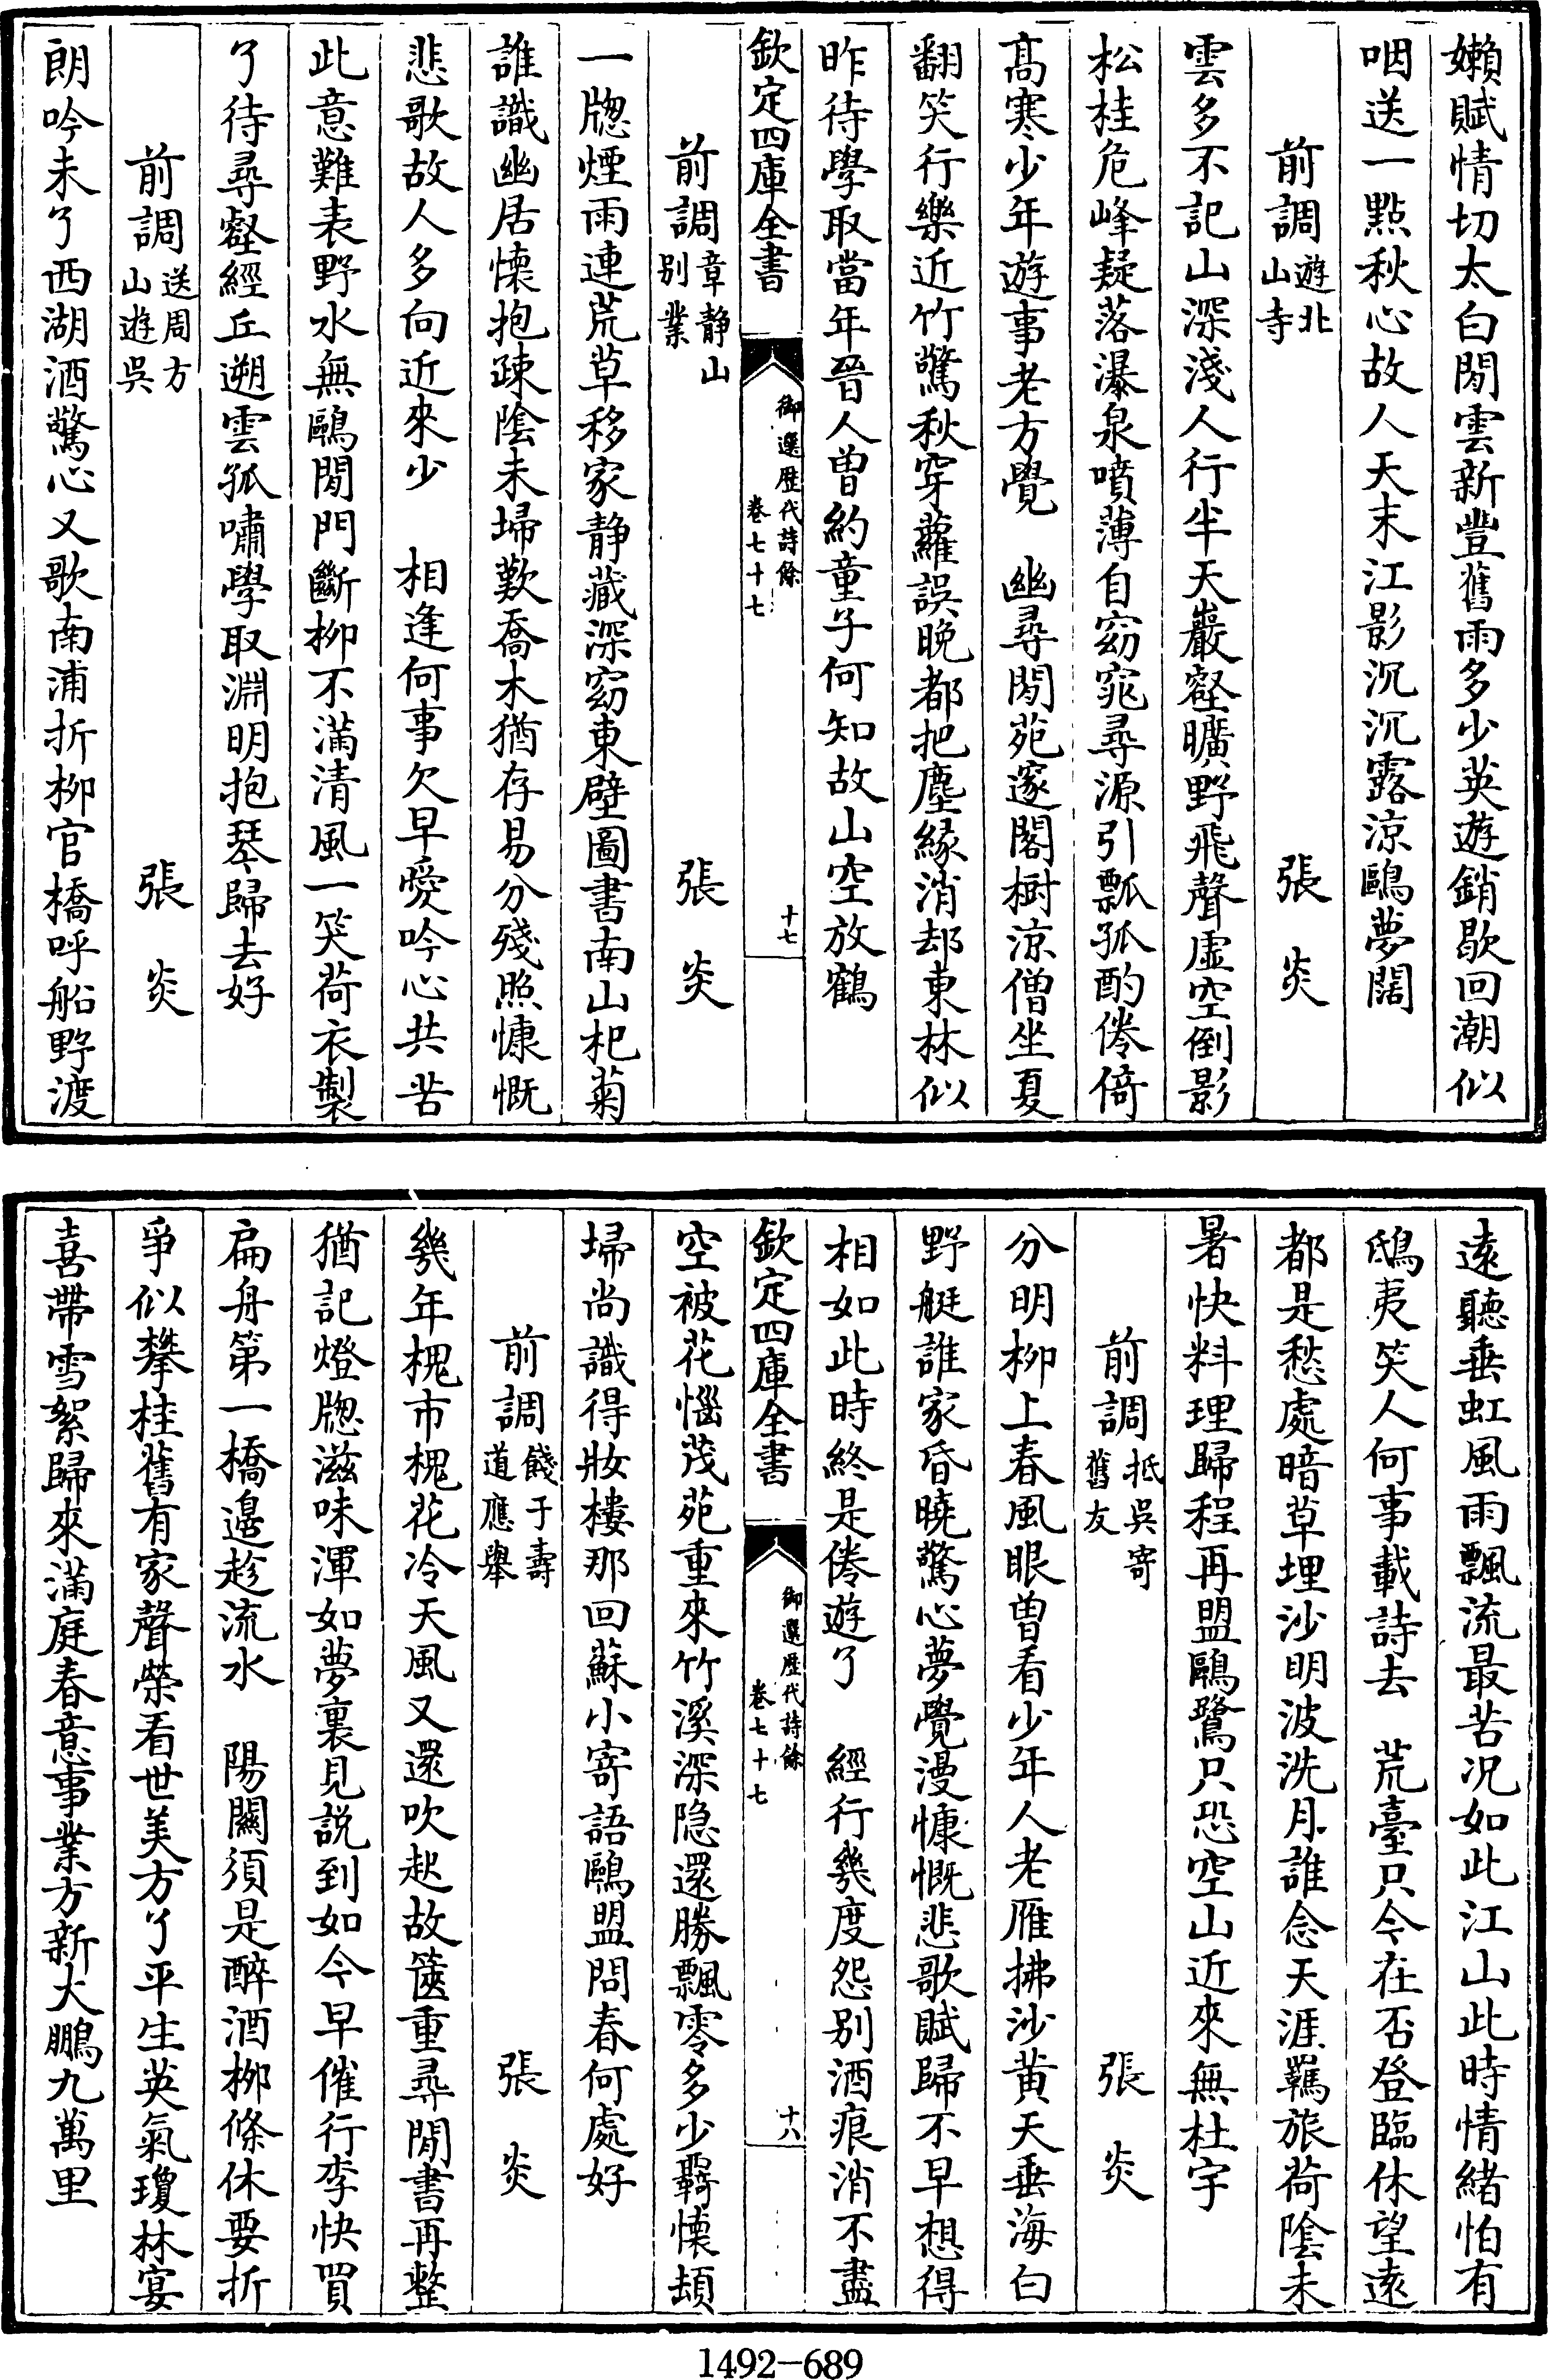 嬾賦情切太白閒雲新豐舊雨多少英遊銷歇回潮似
咽送一㸃秋心故人天末江影沉沉露涼鷗夢闊
前調遊北山寺　張炎
雲多不記山深淺人行半天巖壑曠野飛聲虛空倒影
松桂危峰疑落瀑泉噴薄自窈窕尋源引瓢孤酌倦倚
髙寒少年遊事老方覺　幽尋閒苑邃閣樹涼僧坐夏
翻笑行樂近竹驚秋穿蘿誤晚都把塵緣消却東林似
昨待學取當年晉人曽約童子何知故山空放鶴
欽定四庫全書　御選歷代詩餘　卷七十七　十七
前調章靜山別業　張炎
一牕煙雨連荒草移家靜藏深窈東壁圖書南山杞菊
誰識幽居懐抱疎陰未埽歎喬木猶存易分殘照慷慨
悲歌故人多向近來少　相逢何事欠早愛吟心共苦
此意難表野水無鷗閒門斷柳不滿清風一笑荷衣製
了待尋壑經丘遡雲孤嘯學取淵明抱琴歸去好
前調送周方山遊吳　張炎
朗吟未了西湖酒驚心又歌南浦折柳官橋呼船野渡
遠聽垂虹風雨飄流最苦況如此江山此時情緒怕有
鴟夷笑人何事載詩去　荒臺只今在否登臨休望遠
都是愁處暗草埋沙明波洗月誰念天涯羈旅荷陰未
暑快料理歸程再盟鷗鷺只恐空山近來無杜宇
前調抵吳寄舊友　張炎
分明柳上春風眼曽看少年人老雁拂沙黃天垂海白
野艇誰家昏曉驚心夢覺漫慷慨悲歌賦歸不早想得
相如此時終是倦遊了　經行幾度怨別酒痕消不盡
欽定四庫全書　御選歷代詩餘　卷七十七　十八
空被花惱茂苑重來竹溪深隱還勝飄零多少羇懐頓
埽尚識得妝樓那回蘇小寄語鷗盟問春何處好
前調餞于壽道應舉　張炎
幾年槐市槐花冷天風又還吹起故篋重尋閒書再整
猶記燈牕滋味渾如夢裏見説到如今早催行李快買
扁舟第一橋邊趁流水　陽關須是醉酒柳條休要折
爭似攀桂舊有家聲榮看世美方了平生英氣瓊林宴
喜帶雪絮歸來滿庭春意事業方新大鵬九萬里
1492-689